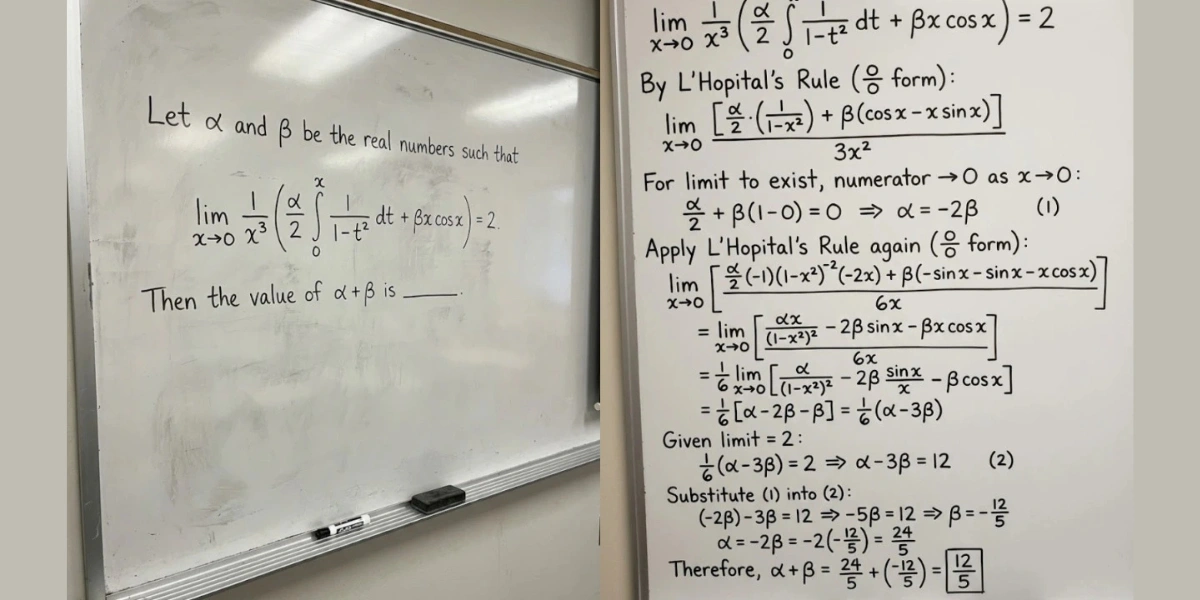 Let α and β be the real numbers such that
lim x→0 1/x³ (α/2 ∫₀ˣ 1/(1-t²) dt + βx cos x) = 2.
Then the value of α+β is ______.
lim x→0 1/x³ (α/2 ∫₀ 1/(1-t²) dt + βx cos x) = 2
By L'Hopital's Rule (0/0 form):
lim x→0 [α/2·(1/(1-x²)) + β(cos x - x sin x)] / 3x²
For limit to exist, numerator → 0 as x→0:
α/2 + β(1-0) = 0 ⇒ α = -2β (1)
Apply L'Hopital's Rule again (0/0 form):
lim x→0 [α/2(-1)(1-x²)⁻²(-2x) + β(-sin x - sin x - x cos x) / 6x]
= lim x→0 [αx/(1-x²)² - 2β sin x - βx cos x / 6x]
= 1/6 lim x→0 [α/(1-x²)² - 2β sin x/x - β cos x]
= 1/6 [α - 2β - β] = 1/6 (α - 3β)
Given limit = 2:
1/6 (α - 3β) = 2 ⇒ α - 3β = 12 (2)
Substitute (1) into (2):
(-2β) - 3β = 12 ⇒ -5β = 12 ⇒ β = -12/5
α = -2β = -2(-12/5) = 24/5
Therefore, α + β = 24/5 + (-12/5) = 12/5